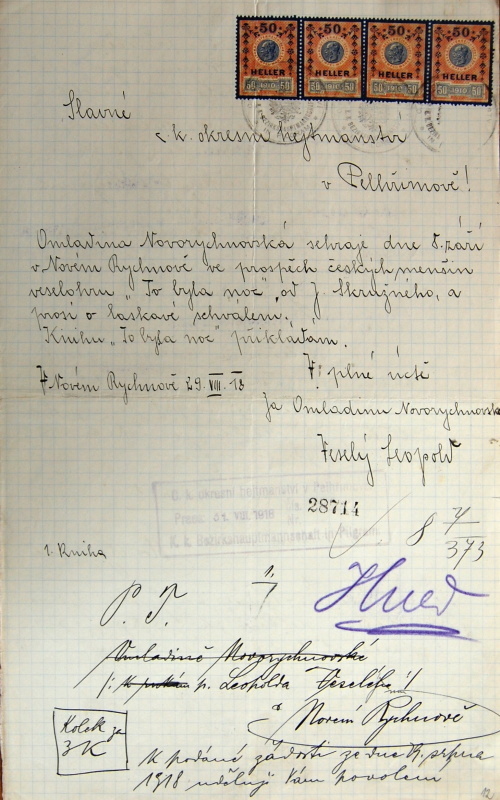 50 50 50 50
HELLER HELLER HELLER HELLER
50 1910 50 50 1910 50 50 1910 50 50 1910 50
Slavné
c. k. okresní hejtmanství
v Pelhřimově!
Omladina Novorychnovská sehraje dne 8. září
v Novém Rychnově ve prospěch českých menšin
veselohru „To byla noc" od J. Skružného, a
prosí o laskavé schválení.
Knihu „To byla noc" přikládám.
V plné úctě
V Novém Rychnově 29. VIII. 18
Za Omladinu Novorychnovsk
Veselý Leopold
C. k. okresní hejtmanství v Pelhřimově
Praes. 31. VIII. 1918
28714
K. k. Bezirkshauptmannschaft in Pilgram.
8 7/373
1. Kniha
P. T.
1./7
Hned
Omladině Novorychnovské
p. Leopolda Veselého!
v
Novém Rychnově
Kolek za
3K
K podané žádosti ze dne srpna
1918 uděluji Vám povolení
12